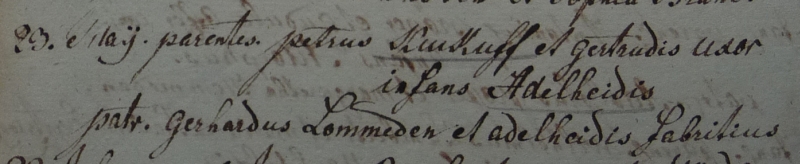 23. May. parentes. petrus Kuckuff et gertrudis uxor
infans Adelheidis
patr. gerhardus Lommeden et adelheidis fabritius